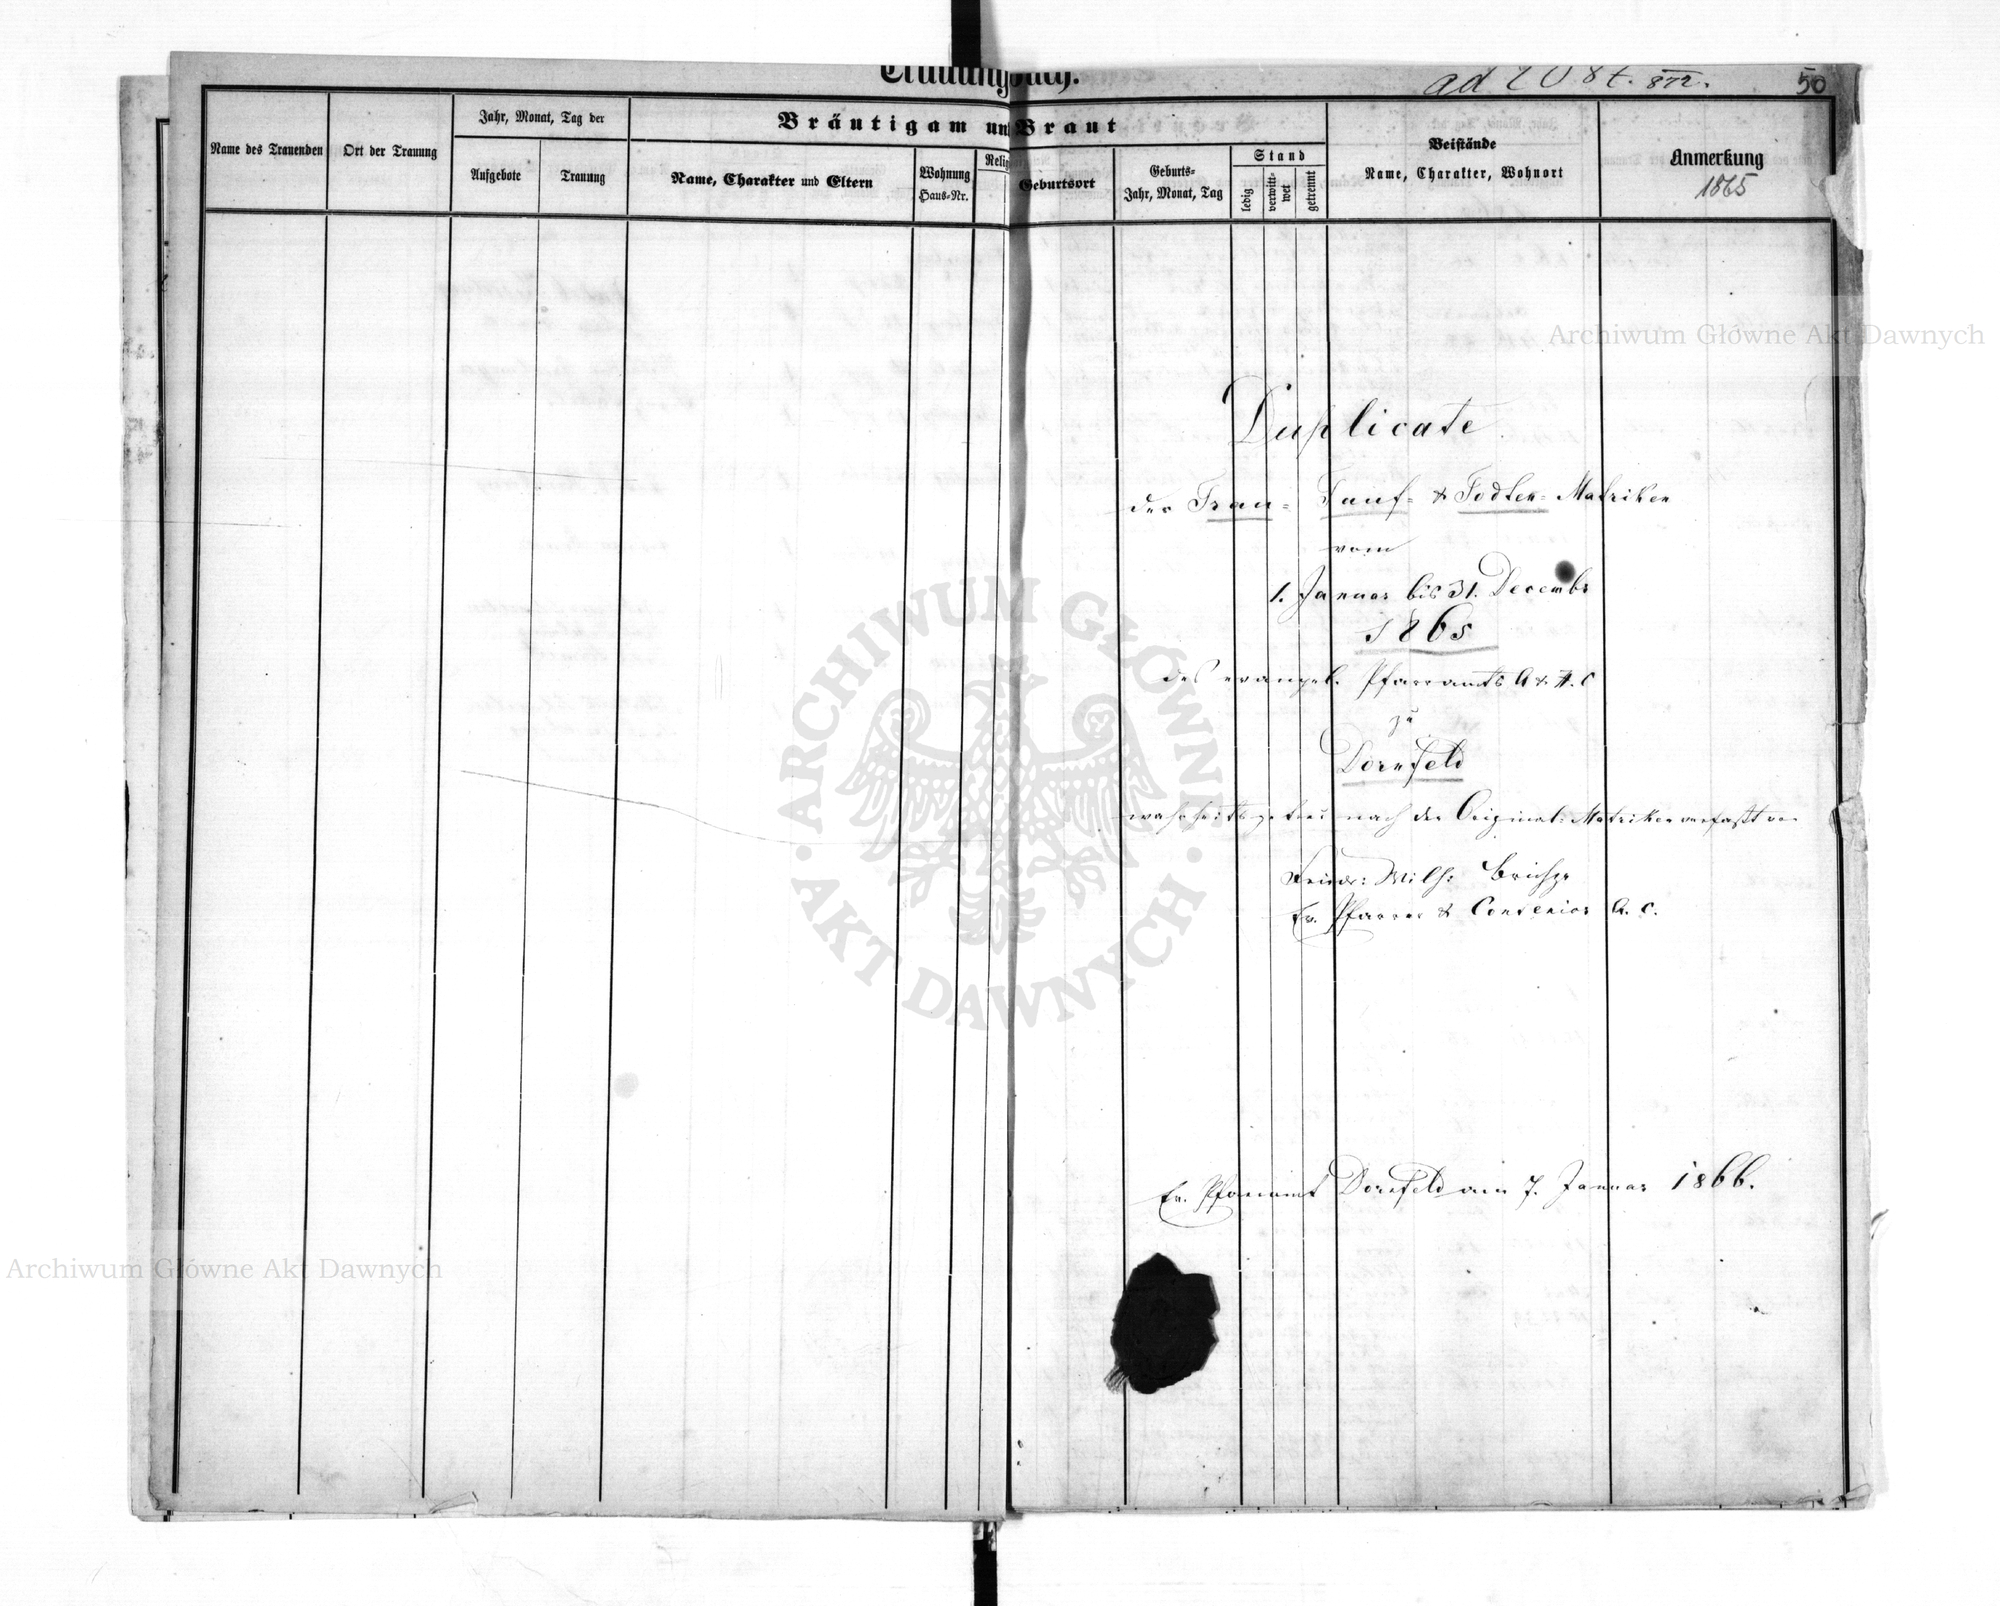 Trauungsbuch.
50
Name des Trauenden
Ort der Trauung
Jahr, Monat, Tag der
Aufgebote
Trauung
Bräutigam und Braut
Name, Charakter und Eltern
Wohnung
Haus-Nr.
Geburtsort
Geburts-
Jahr, Monat, Tag
Stand
ledig
verwitt-
wet
getrennt
Beistände
Name, Charakter, Wohnort
Anmerkung
1865
Duplicate
der Trau- Tauf- & Todten- Matriken
vom
1. Januar bis 31. Decembr
1865
des evangel. Pfarramts A & H. C
zu
Dornfeld
wahrheitsgetreu nach den Original-Matriken verfaßt von
Ev. Pfarrer & Consenior A. C.
Ev. Pfarramt Dornfeld am 7. Januar 1866.
Archiwum Główne Akt Dawnych
ARCHIWUM GŁÓWNE
AKT DAWNYCH
Archiwum Główne Akt Dawnych